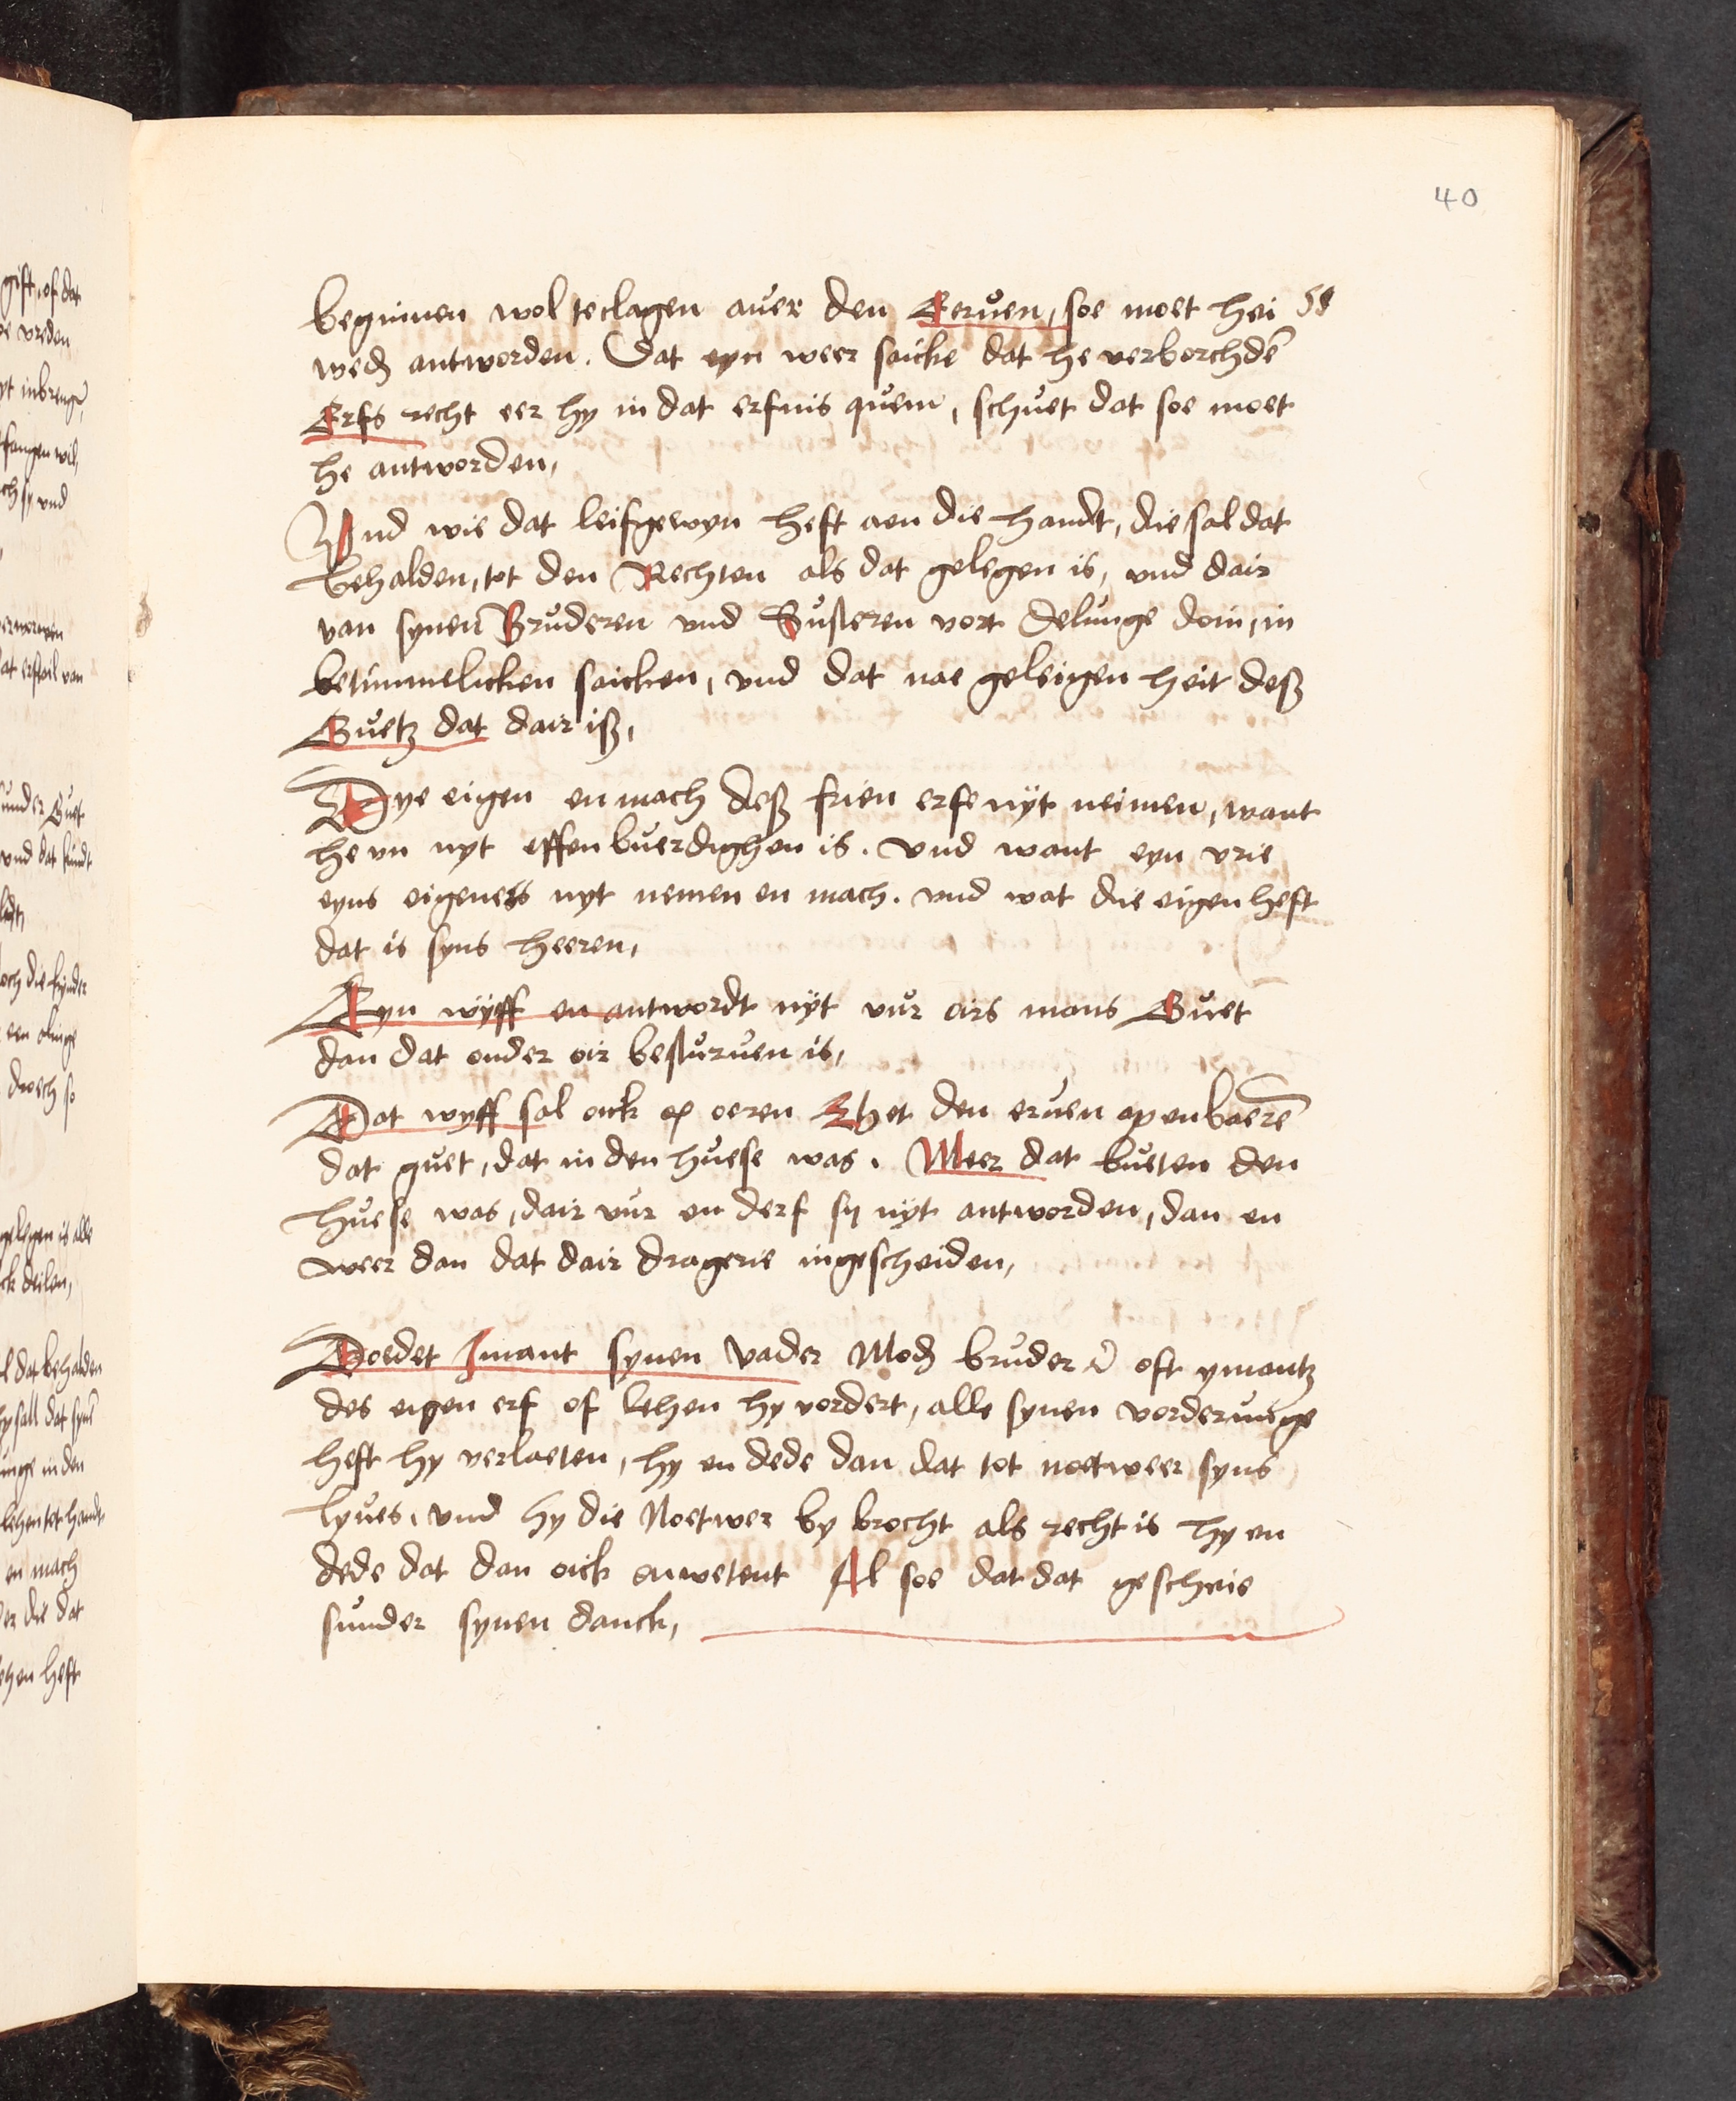 40
beginnen wol te clagen auer den Eeruen, soe moet hei
wed antworden. Dat eyn weer saicke dat he verborchdē
Erfs recht eer hy in dat erfnis quem, schuet dat soe moet
he antworden,
Vnd wie dat leifgewyn heft aen die handt, die sal dat
behalden, tot den Rechten als dat gelegen is, vnd dair
van synen Bruderen vnd Susteren vort delunge doin, in
betimmelicken saicken, vnd dat nae geleigen heit deß
Guetz dat dair iß,
Dye eigen en mach deß frien erfe nÿt neimen, want
he vn nyt effen buerdighen is. Vnd want eyn vrie
eyns eigeners nyt nemen en mach. vnd wat die eigen heft
dat is syns heeren,
Eyn wÿff en antwordt nÿt vur oirs mans Guet
dan dat onder oir besturuen is,
Dat wyff sal oick op oeren Ehet den eruen apenbaerē
dat guet, dat in den huese was. Meer dat bueten den
huese was, dair vur en derf sy nÿt antworden, dan en
weer dan dat dair dragerie ingescheiden,
Doedet Imant synen Vader Mod bruder oft ymantz
des eigen erf of lehen hy vordert, alle synen vorderunge
heft hy verlaeten, hy en dede dan dat tot noetweer syns
lyues, vnd hy die Noetwer by brocht als recht is hy en
dede dat dan oick onwetent Al soe dat dat gescheie
sunder synen danck,